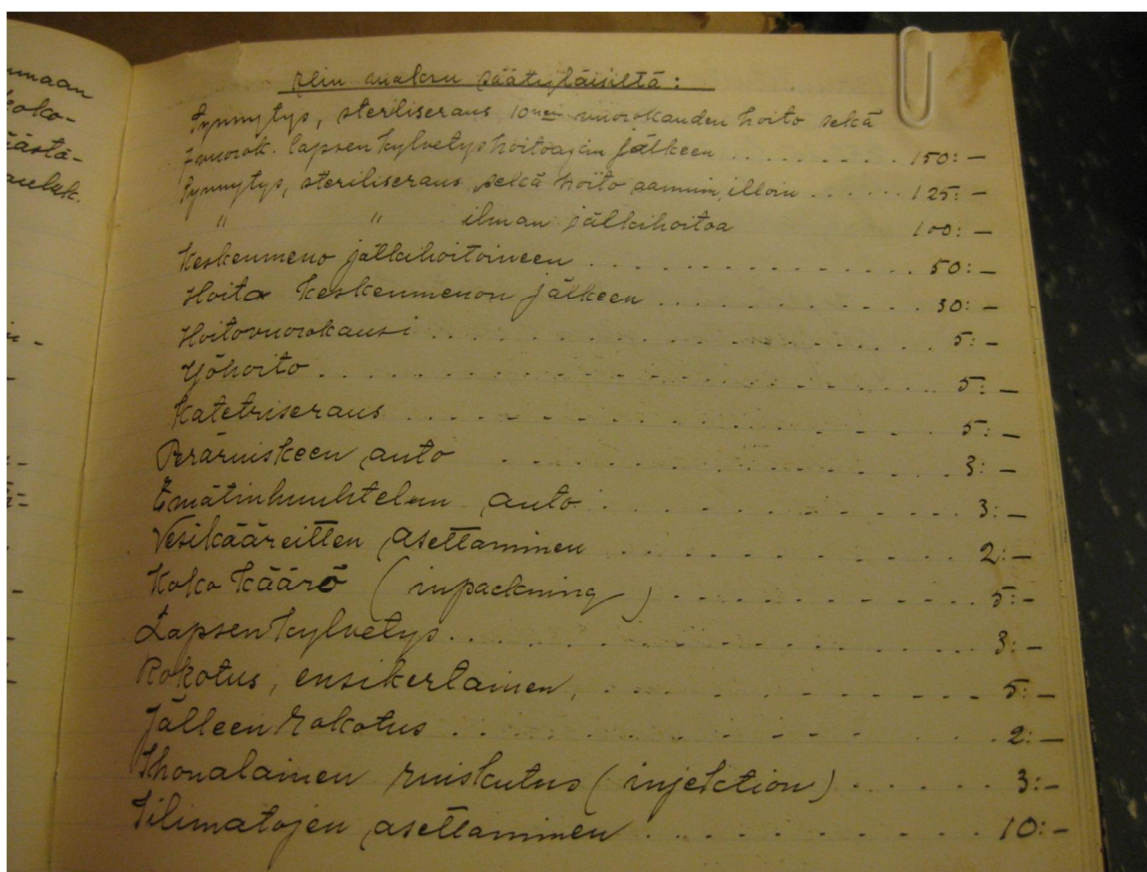 umaan
koko-
säätyläisiltä:
Synnytys, steriliseraus 10nen vuorokauden hoito sekä
7 vuorok. lapsen kylvetys hoitoajan jälkeen ........ 150:-
Synnytys, steriliseraus sekä hoito aamuin, illoin ..... 125:-
" " ilman jälkihoitoa 100:-
Keskenmeno jälkihoitoineen ............ 50:-
Hoito keskenmenon jälkeen .......... 30:-
Hoitovuorokausi .............. 5:-
Yöhoito .................. 5:-
Katetriseraus ................ 5:-
Peräruiskeen anto ............ 3:-
Emätinhuuhtelun anto .......... 3:-
Vesikääreitten asettaminen .......... 2:-
Koko käärö (inpackning) .......... 5:-
Lapsen kylvetys ............... 3:-
Rokotus, ensikertainen, ........... 5:-
Jälleen rokotus .............. 2:-
Ihonalainen ruiskutus (injektion) ...... 3:-
Iilimatojen asettaminen .......... 10:-